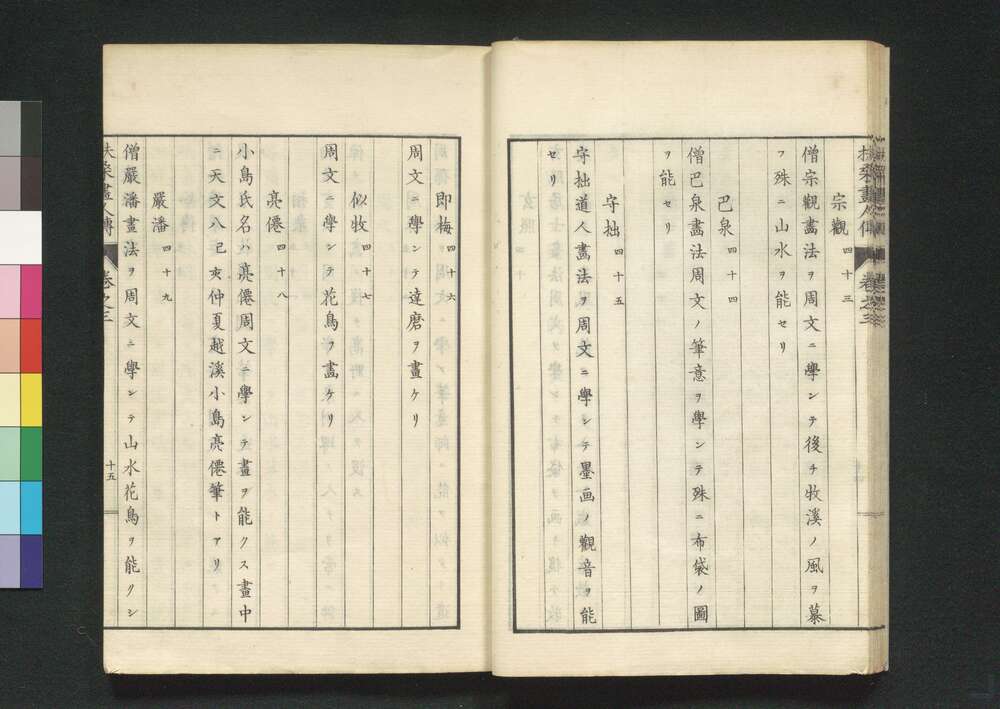 扶桑畫人傳 卷之三
宗觀 四十三
僧宗觀畫法ヲ周文ニ學ンテ後チ牧溪ノ風ヲ慕
フ殊ニ山水ヲ能セリ
巴泉 四十四
僧巴泉畫法周文ノ筆意ヲ學ンテ殊ニ布袋ノ圖
ヲ能セリ
守拙 四十五
守拙道人畵法ヲ周文ニ學ンテ墨画ノ觀音ヲ能
セリ
即梅 四十六
周文ニ學ンテ達磨ヲ畫ケリ
似牧 四十七
周文ニ學ンテ花鳥ヲ畵ケリ
亮僊 四十八
小島氏名ハ亮僊周文ニ學ンテ畫ヲ能クス畫中
ニ天文八己亥仲夏越溪小島亮僊筆トアリ
嚴潘 四十九
僧嚴潘畫法ヲ周文ニ學ンテ山水花鳥ヲ能クシ
扶桑畫人傳 卷之三 十五